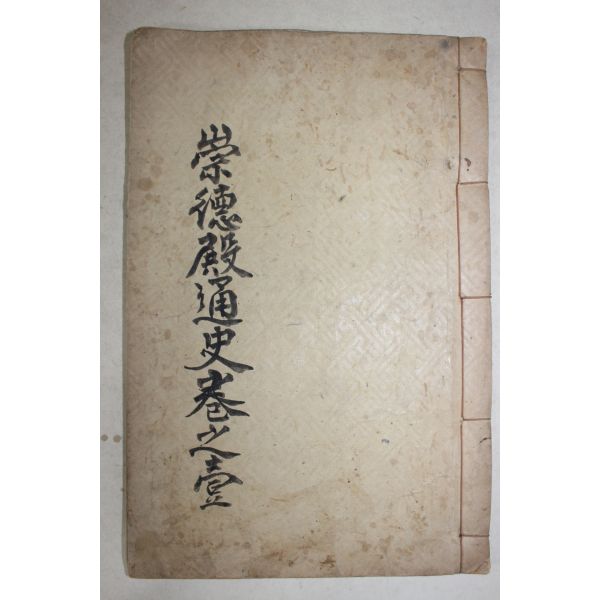 崇德殿通史卷之壹